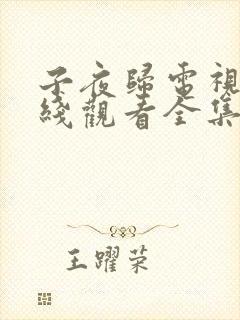 子夜歸電視
綫觀看全集
王躍荣